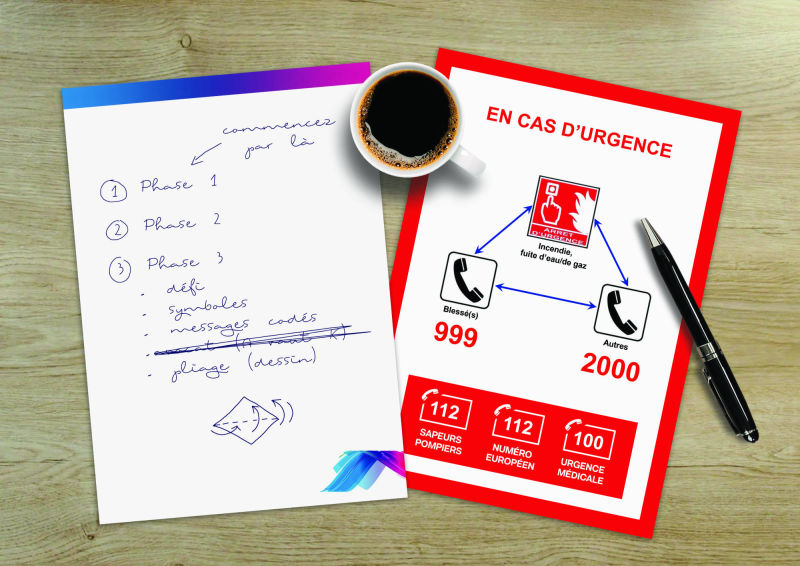 commencez
par là
1 Phase 1
2 Phase 2
3 Phase 3
. défi
. symboles
. messages codés
. (A vaut K)
. pliage (dessin)
EN CAS D'URGENCE
ARRET
D'URGENCE
Incendie,
fuite d'eau/de gaz
Blessé(s)
999
Autres
2000
112
SAPEURS
POMPIERS
112
NUMÉRO
EUROPÉEN
100
URGENCE
MÉDICALE